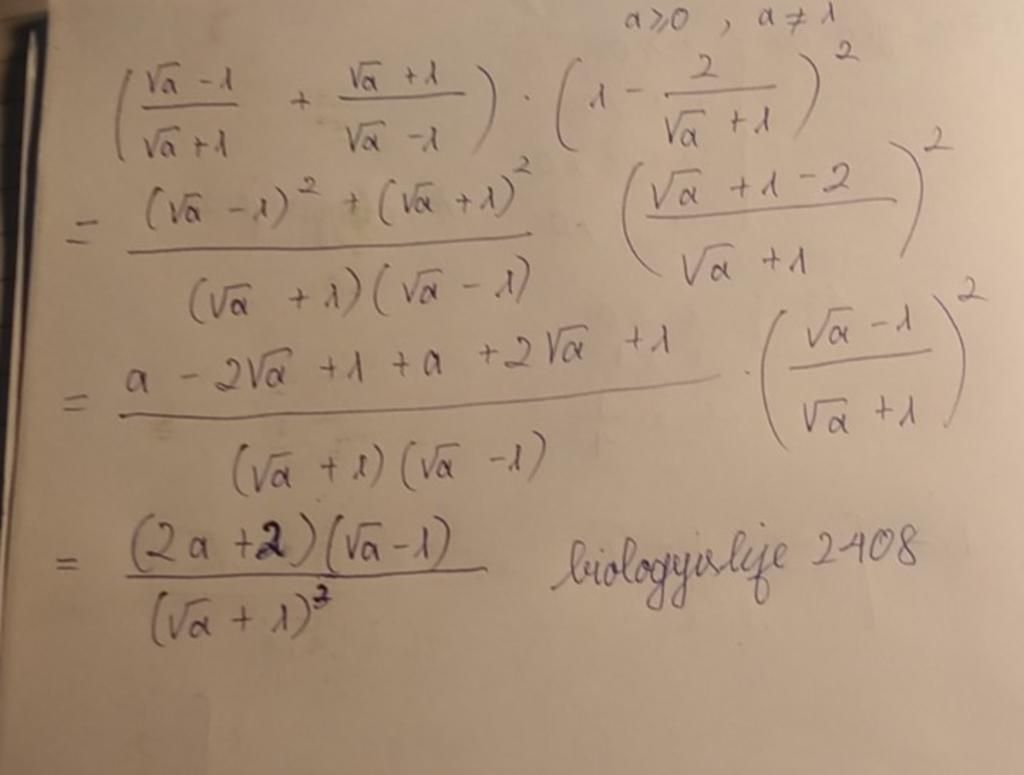 a ≥ 0 , a ≠ 1
( (√a - 1)/(√a + 1) + (√a + 1)/(√a - 1) ) · ( 1 - 2/(√a + 1) )²
= ((√a - 1)² + (√a + 1)²)/((√a + 1)(√a - 1)) · ( (√a + 1 - 2)/(√a + 1) )²
= (a - 2√a + 1 + a + 2√a + 1)/((√a + 1)(√a - 1)) · ( (√a - 1)/(√a + 1) )²
= ((2a + 2)(√a - 1))/((√a + 1)³) biologyislife 2408